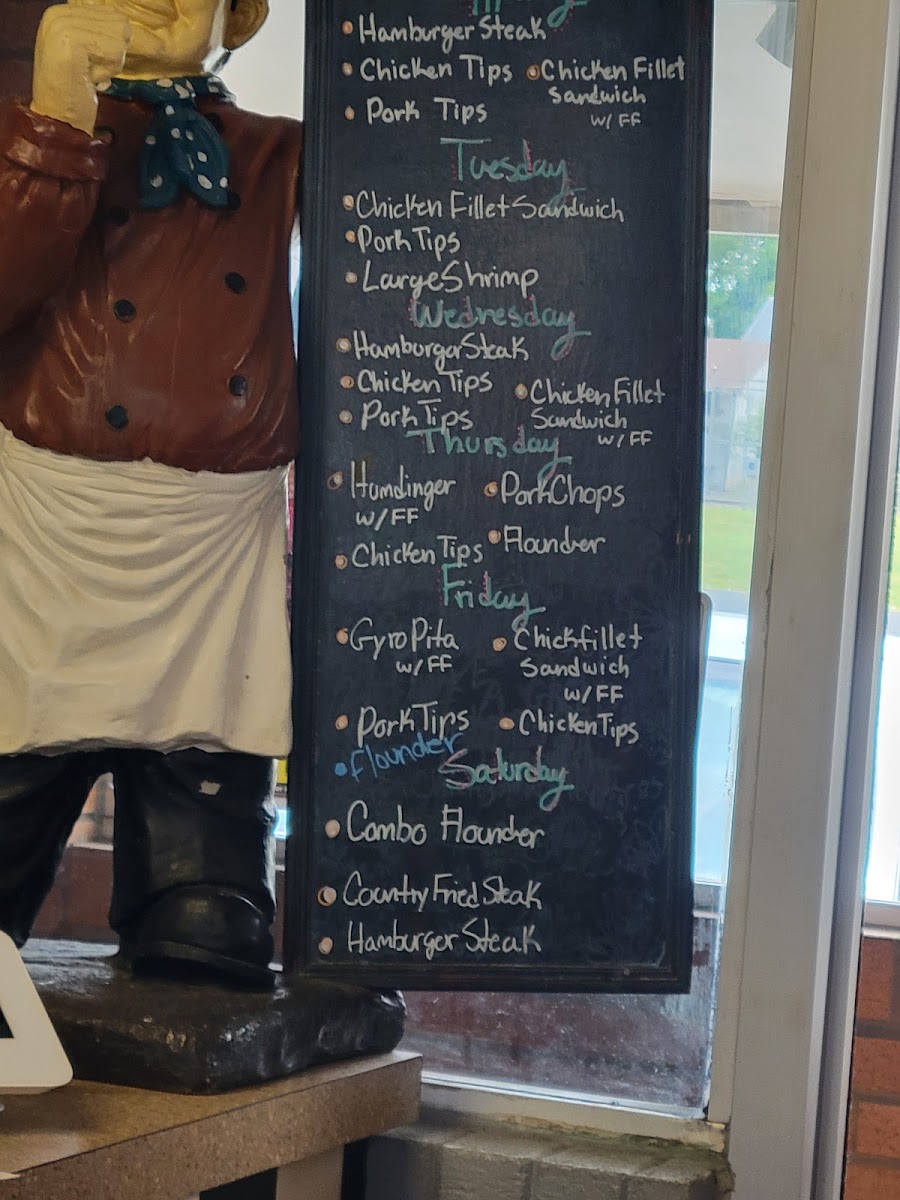 Hamburger Steak
Chicken Tips
Chicken Fillet
Sandwich
w/ FF
Pork Tips
Tuesday
Chicken Fillet Sandwich
Pork Tips
Large Shrimp
Wednesday
Hamburger Steak
Chicken Tips
Pork Tips
Chicken Fillet
Sandwich
w/ FF
Thursday
Humdinger
w/ FF
Pork Chops
Chicken Tips
Flounder
Friday
Gyro Pita
w/ FF
Chickfillet
Sandwich
w/ FF
Pork Tips
Chicken Tips
Flounder
Saturday
Combo Flounder
Country Fried Steak
Hamburger Steak